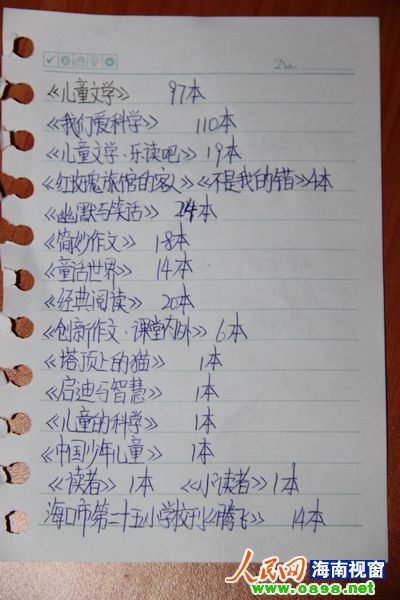 Date:
《儿童文学》 97本
《我们爱科学》 110本
《儿童文学·乐读吧》19本
《红玫瑰旅馆的客人》《不是我的错》4本
《幽默与笑话》 24本
《简妙作文》 18本
《童话世界》 14本
《经典阅读》 20本
《创新作文·课堂内外》6本
《塔顶上的猫》 1本
《启迪与智慧》 1本
《儿童的科学》 1本
《中国少年儿童》 1本
《读者》1本 《小读者》1本
海口市第二十五小学校刊《腾飞》 14本
人民网 海南视窗
www.0898.net